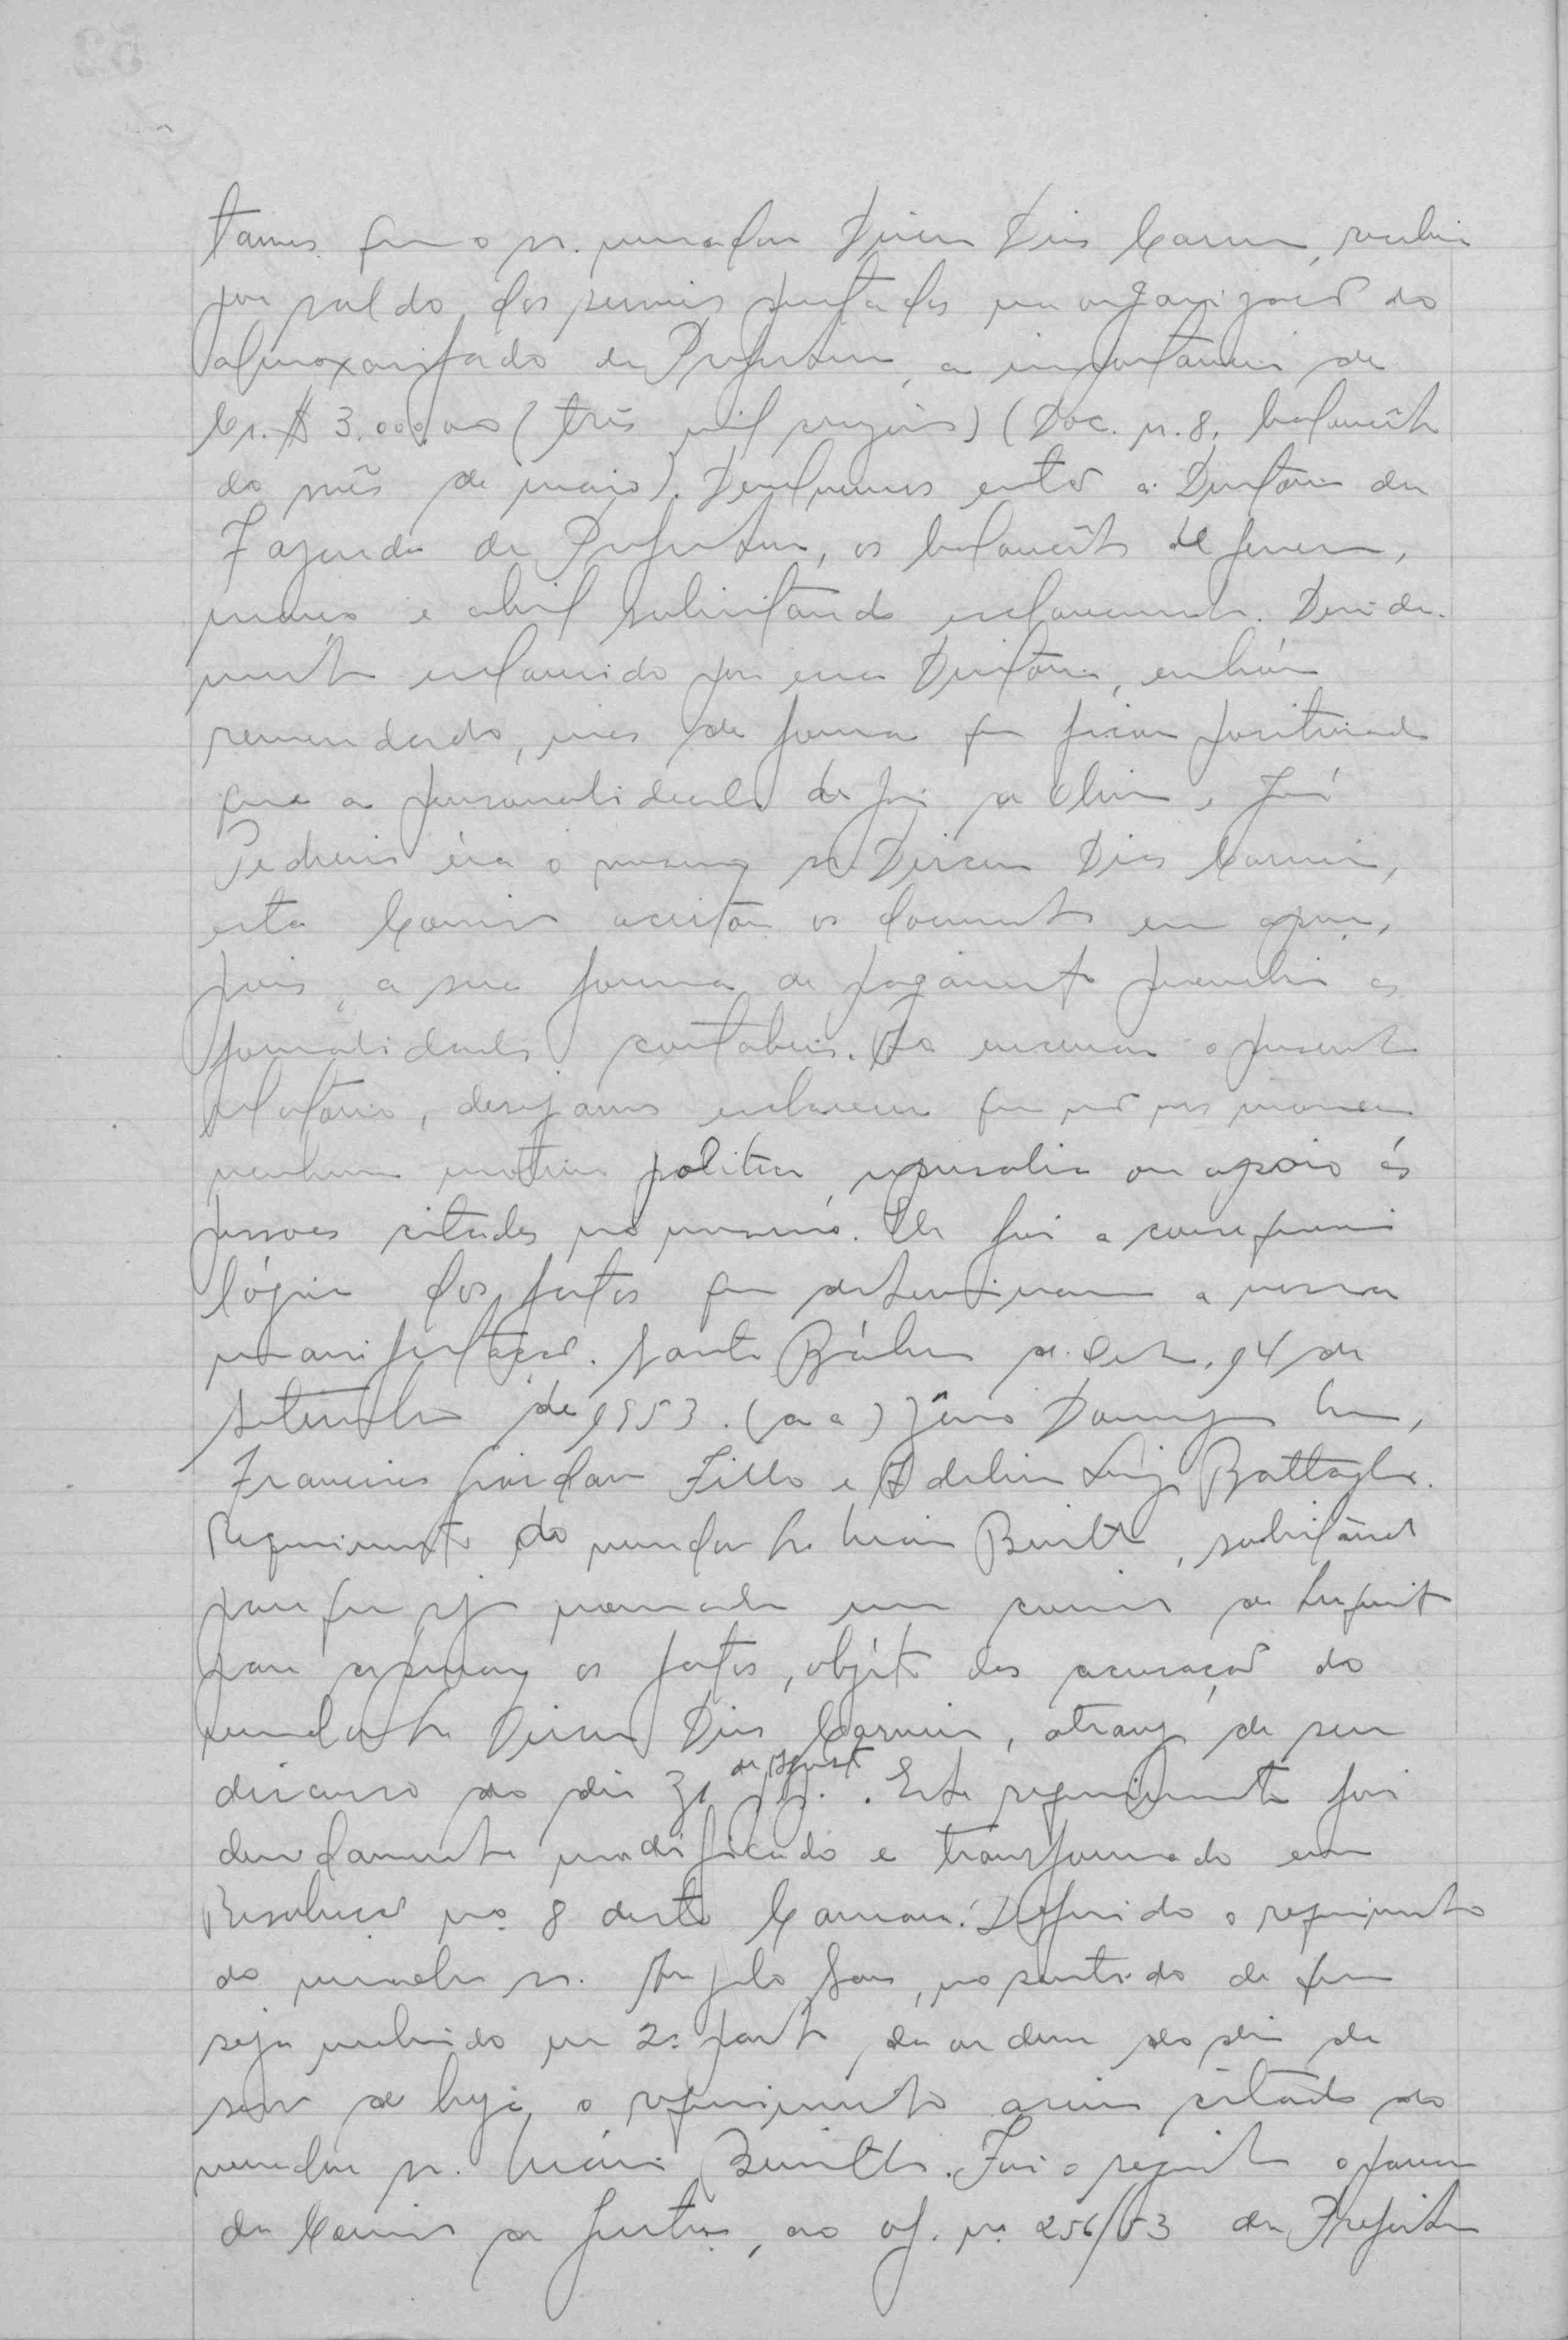 tamos que o sr. vereador Dirceu Dias Carneiro, recebeu
por saldo dos serviços prestados na organização do
almoxarifado da Prefeitura, a importância de
Cr.$ 3.000,00 (três mil cruzeiros) (Doc. n. 8, balancête
do mês de maio). Devolvemos então a Diretoria da
Fazenda da Prefeitura, os balancêtes de janeiro,
março e abril solicitando esclarecimento. Devida-
mente esclarecido por essa Diretoria, embóra
remendado, mas de forma que ficou positivado
que a personalidade de
Pedreiro éra o mesmo sr. Dirceu Dias Carneiro,
esta Comissão aceitou os documentos em apreço,
pois, a sua forma de pagamento preenchia as
formalidades contabeis. Ao encerrar o presente
relatório, desejamos esclarecer que não nos moveu
nenhum motivo politico, represalia ou apoio ás
pessoas citadas no mesmo. Ele foi a consequencia
lógica dos fatos que determinaram a nossa
manifestação. Santa Bárbara d'Oeste, 14 de
setembro de 1953. (a a)
Francisco Giordano Filho e Adelino Luiz Battaglia.
Requerimento do vereador sr. solicitando
para que seja nomeada uma comissão de Inquerito
para apurar os fatos, objéto das acusações do
vereador sr. Dirceu Dias Carneiro, atravez de seu
discurso do dia 31 de Agosto p.p. . Este requerimento foi
devidamente modificado e transformado em
Resolução nº 8 desta Camara. Deferido o requerimento
do vereador sr. Angelo no sentido de que
seja incluido na 2ª parte da ordem do dia da
sessão de hoje, o requerimento acima citado do
vereador sr. Foi o seguinte o parecer
da Comissão de Justiça, ao of. nº 256/53 da Prefeitura